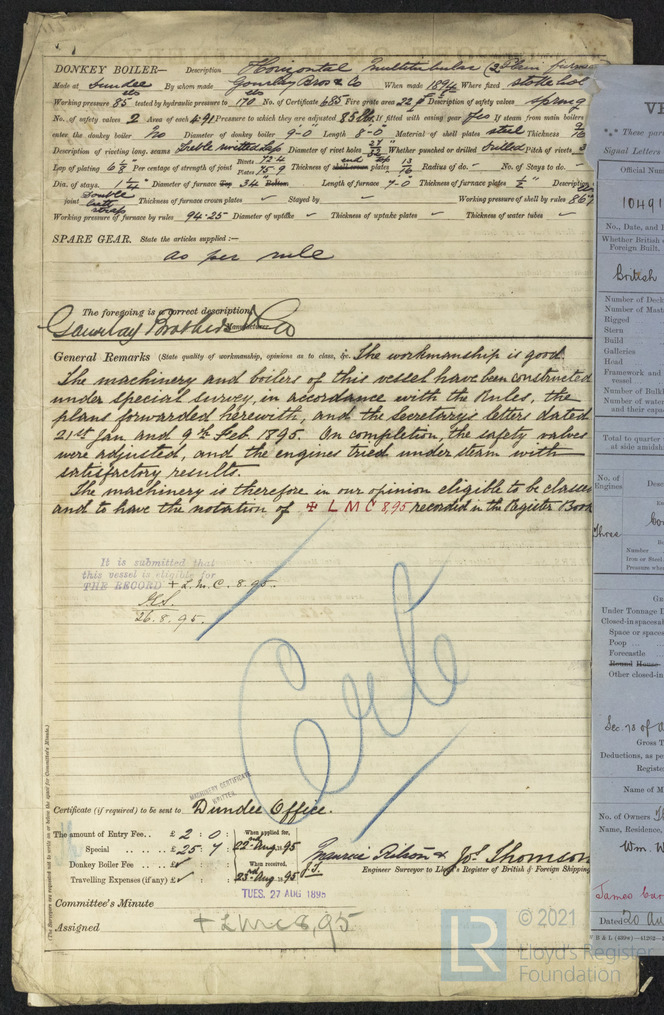 DONKEY BOILER— Description Horizontal Multitubular (2 Plain furnaces
Made at Dundee By whom made Gourlay Bros & Co When made 1894 Where fixed stokehol
Working pressure 85 tested by hydraulic pressure to 170 No. of Certificate 485 Fire grate area 22 Description of safety valves spring
No. of safety valves 2 Area of each 4.91 Pressure to which they are adjusted 85 lbs. If fitted with easing gear yes If steam from main boilers
enters the donkey boiler no Diameter of donkey boiler 9-0 Length 8-0 Material of shell plates steel Thickness
Description of riveting long. seams Diameter of rivet holes Whether punched or drilled drilled Pitch of rivets 3
Lap of plating 6 Per centage of strength of joint Rivets 72.4 Plates 75.9 Thickness of end plates Radius of do. – No. of Stays to do. –
Dia. of stays. 1 1/4" Diameter of furnace Top 34" Bottom Length of furnace 7-0 Thickness of furnace plates 1/2" Description
joint double butt strap Thickness of furnace crown plates Stayed by Working pressure of shell by rules 86
Working pressure of furnace by rules 94.25 Diameter of uptake Thickness of uptake plates Thickness of water tubes
SPARE GEAR. State the articles supplied:—
as per rule
The foregoing is a correct description,
Gourlay Brothers & Co Manufacturer.
General Remarks (State quality of workmanship, opinions as to class, &c. The workmanship is good.
The machinery and boilers of this vessel have been constructed
under special survey, in accordance with the Rules, the
plans forwarded herewith, and the Secretary's letters dated
21st Jan. and 9th Feb. 1895. On completion, the safety valves
were adjusted, and the engines tried under steam with
satisfactory results.
The machinery is therefore in our opinion eligible to be classed
and to have the notation of ✠ L M C 8,95 recorded in the Register Book
It is submitted that
this vessel is eligible for
THE RECORD + L.M.C. 8.95.
26.8.95.
MACHINERY CERTIFICATE
WRITTEN.
Certificate (if required) to be sent to Dundee Office.
The amount of Entry Fee.. £ 2 : 0 : When applied for,
Special £ 25 : 7 : 22nd Aug 95
Donkey Boiler Fee £ When received,
Travelling Expenses (if any) £ Aug. 95
Jos. Thomson
Engineer Surveyor to Lloyd's Register of British & Foreign Shipping
TUES. 27 AUG 1895
Committee's Minute
Assigned + L M C 8,95
(The Surveyors are requested not to write on or below the space for Committee's Minute.)
Official Num
1049
No., Date, and
Whether British
Foreign Built.
British
Number of Deck
Number of Mast
Rigged
Stern
Build
Galleries
Head
Framework and
vessel
Number of Bulk
Number of water
and their capa
Total to quarter
at side amidsh
No. of
Engines
Three
Number
Iron or Steel
Pressure when
Under Tonnage D
Closed-in spaces
Space or spaces
Poop
Forecastle
Round House
Other closed-in
Gross T
Deductions, as pe
Registe
Name of M
No. of Owners
Name, Residence,
Wm. W
James Car
Dated 20 Au
© 2021
LR Lloyd's Register
Foundation